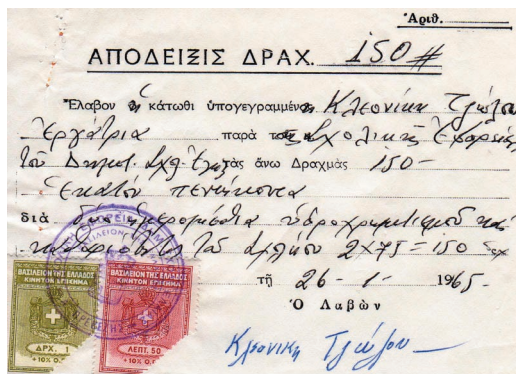 Ἀριθ.
ΑΠΟΔΕΙΞΙΣ ΔΡΑΧ. 150#
Ἔλαβον ἡ κάτωθι ὑπογεγραμμένη Κλεονίκη
Ἐργάτρια παρὰ τῆς Σχολικῆς Ἐφορείας
τοῦ Δημοτ. Σχολ. τὰς ἄνω Δραχμὰς 150-
Ἑκατὸν πενήκοντα
διὰ δύο ἡμερομίσθια ὑδροχρωματισμοῦ καὶ
2×75=150
τῇ 26-1-1965.
Ὁ Λαβὼν
Κλεονικη
ΒΑΣΙΛΕΙΟΝ ΤΗΣ ΕΛΛΑΔΟΣ
ΚΙΝΗΤΟΝ ΕΠΙΣΗΜΑ
ΔΡΧ. 1
+10% Ο.Γ
ΒΑΣΙΛΕΙΟΝ ΤΗΣ ΕΛΛΑΔΟΣ
ΚΙΝΗΤΟΝ ΕΠΙΣΗΜΑ
ΛΕΠΤ. 50
+10% Ο.Γ